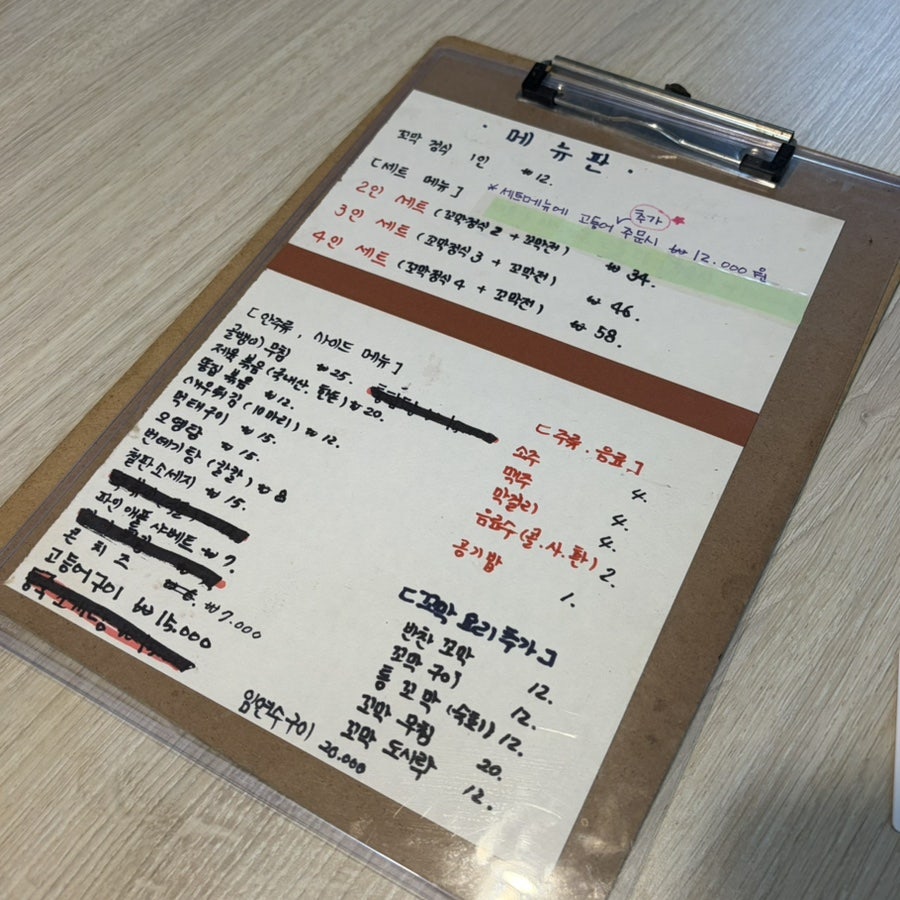 · 메뉴판 ·
꼬막 정식 1인 ₩12.
[세트 메뉴]
*세트메뉴에 고등어 추가 주문시 ₩12.000원
2인 세트 (꼬막정식2 + 꼬막전) ₩34.
3인 세트 (꼬막정식3 + 꼬막전) ₩46.
4인 세트 (꼬막정식4 + 꼬막전) ₩58.
[안주류, 사이드 메뉴]
골뱅이 무침 ₩25.
제육 볶음 (국내산. 한돈) ₩20.
똥집 볶음 ₩12.
새우튀김 (10마리) ₩12.
먹태구이 ₩15.
오뎅탕 ₩15.
번데기탕 (칼칼) ₩8
철판소세지 ₩15.
파인애플 샤베트 ₩7.
콘 치즈 ₩7.000
고등어구이 ₩15.000
임연수구이 20.000
[주류. 음료.]
소주 4.
맥주 4.
막걸리 4.
음료수 (콜.사.환) 2.
공기밥 1.
[꼬막 요리 추가]
반찬 꼬막 12.
꼬막 구이 12.
통 꼬막 (숙회) 12.
꼬막 무침 20.
꼬막 도시락 12.